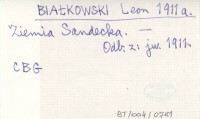 BIAŁKOWSKI Leon 1911 a.
Ziemia Sandecka. —
Odb. z: jw. 1911.
CBG
BT/004/0781